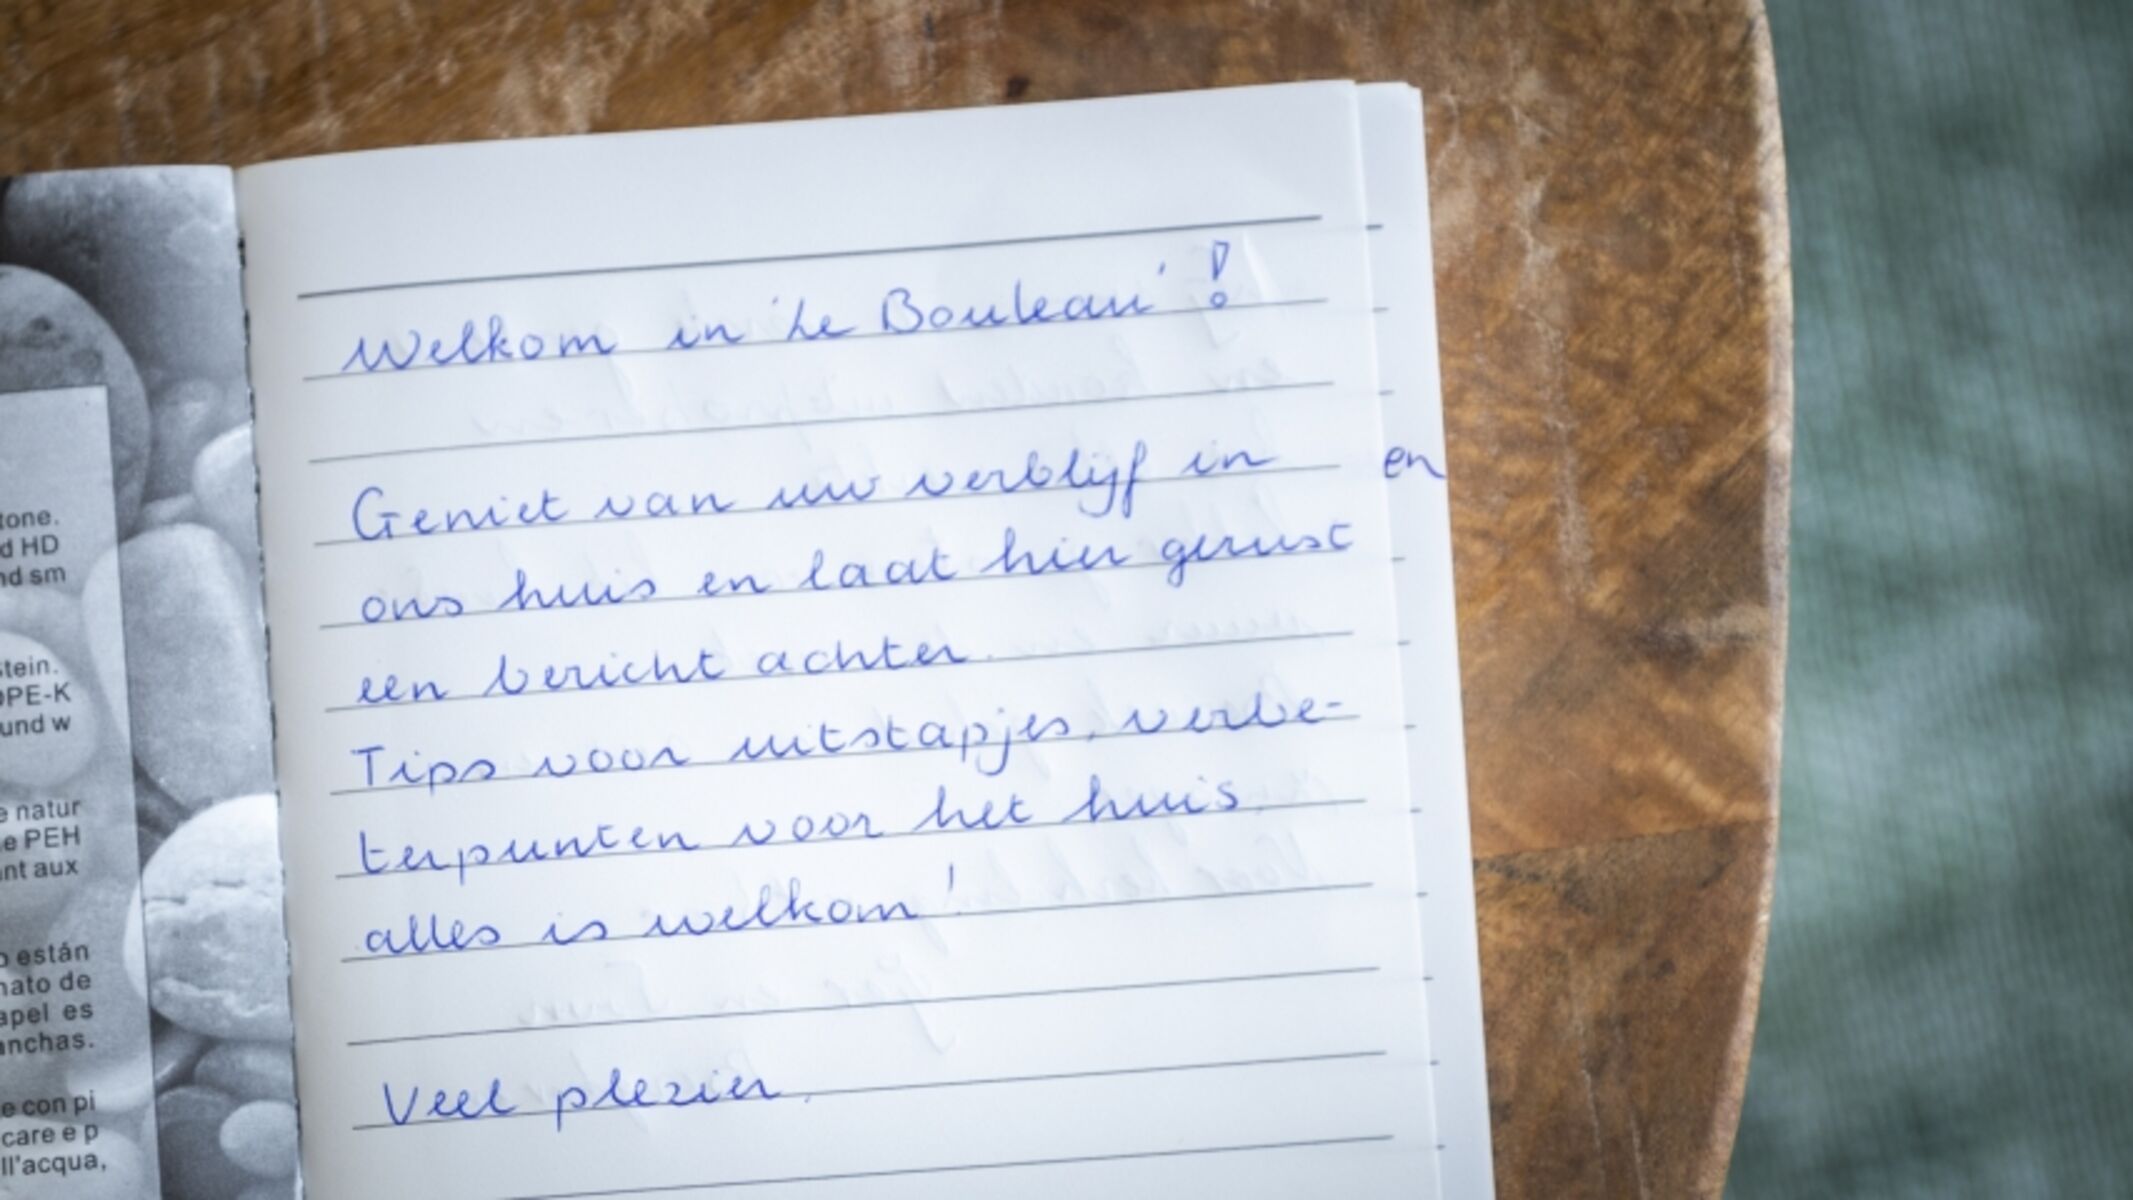 Welkom in 'Le Bouleau'!
Geniet van uw verblijf in
ons huis en laat hier gerust
een bericht achter.
Tips voor uitstapjes, verbe-
terpunten voor het huis,
alles is welkom!
Veel plezier,
en
tone.
d HD
nd sm
stein.
OPE-K
und w
e natur
e PEH
nt aux
o están
nato de
apel es
anchas.
e con pi
care e p
ll'acqua,